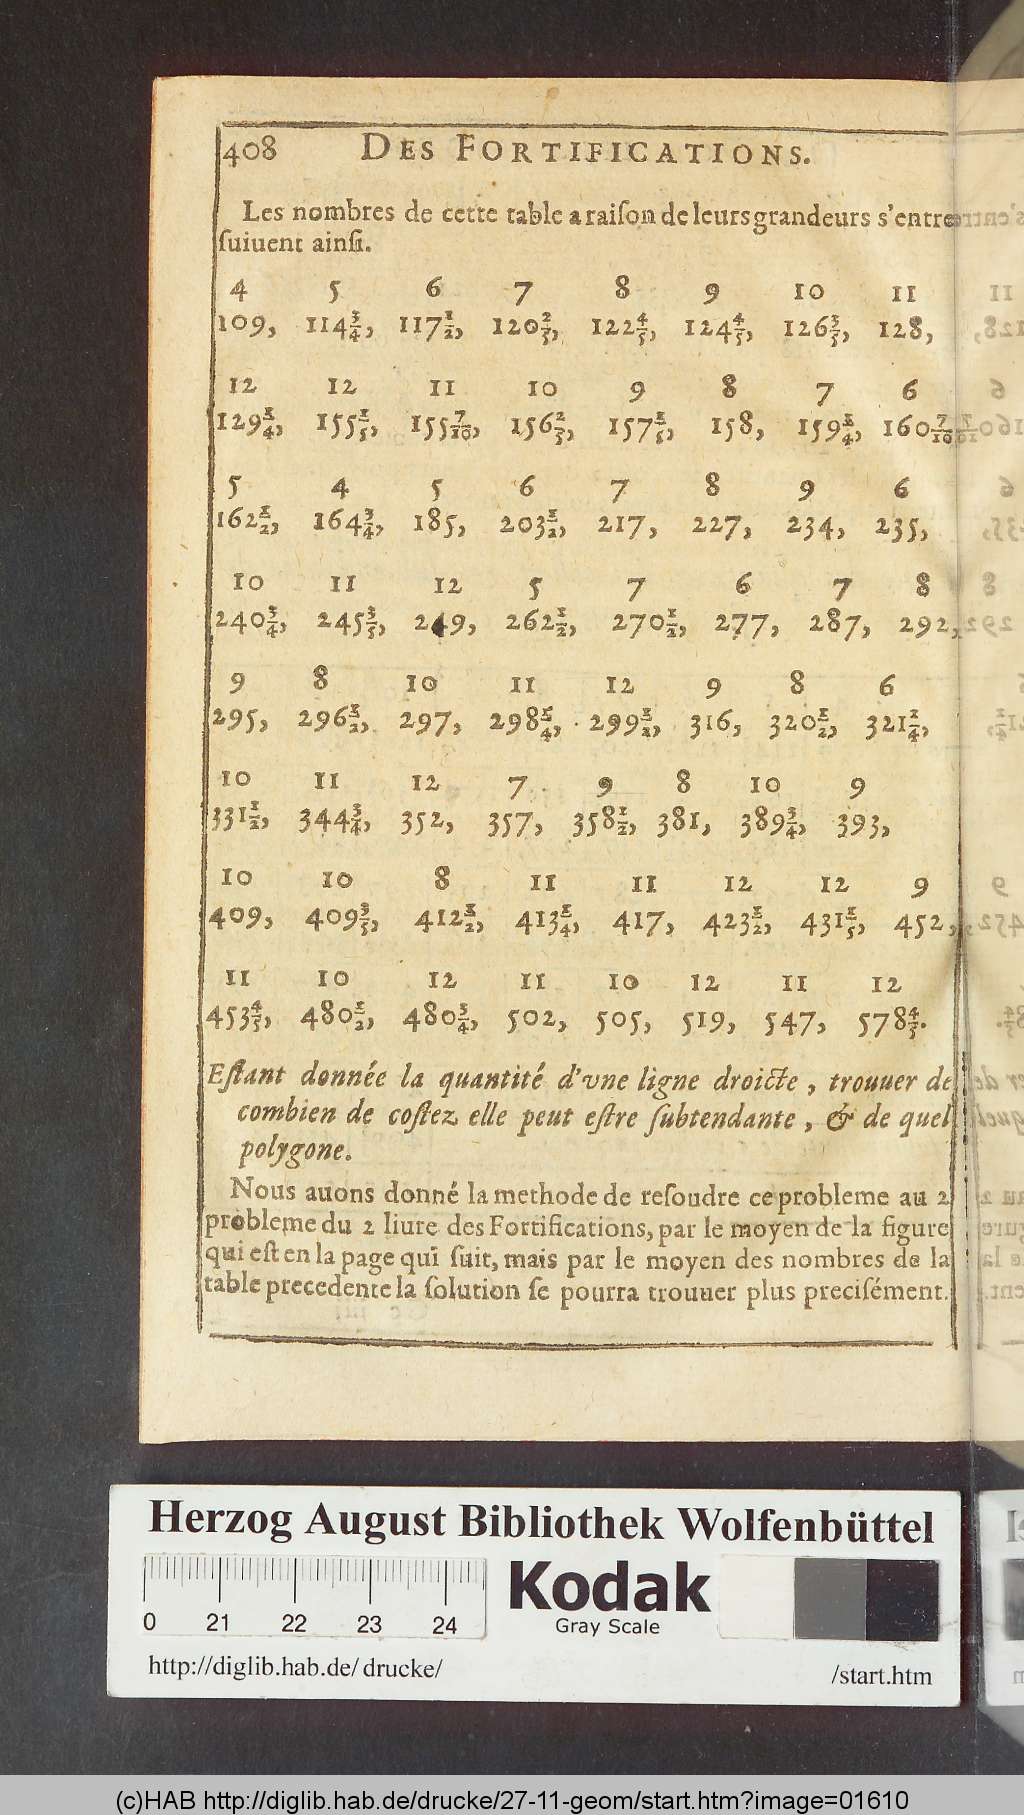 408 DES FORTIFICATIONS.
Les nombres de cette table a raiſon de leurs grandeurs s'entre
ſuiuent ainſi.
4 5 6 7 8 9 10 11
109, 114 3/4, 117 1/2, 120 2/5, 122 4/5, 124 4/5, 126 3/5, 128,
12 12 11 10 9 8 7 6
129 1/4, 155 1/5, 155 7/10, 156 2/5, 157, 158, 159 1/4, 160 7/10
5 4 5 6 7 8 9 6
162 1/2, 164 3/4, 185, 203 1/2, 217, 227, 234, 235,
10 11 12 5 7 6 7 8
240 3/4, 245 3/5, 249, 262 1/2, 270 1/2, 277, 287, 292,
9 8 10 11 12 9 8 6
295, 296 1/2, 297, 298 1/4, 299 1/2, 316, 320 1/2, 321 1/4,
10 11 12 7 9 8 10 9
331 1/2, 344 3/4, 352, 357, 358 1/2, 381, 389 3/4, 393,
10 10 8 11 11 12 12 9
409, 409 3/5, 412 1/2, 413 1/4, 417, 423 1/2, 431 1/5, 452,
11 10 12 11 10 12 11 12
453 4/5, 480 1/2, 480 3/4, 502, 505, 519, 547, 578 4/5.
Eſtant donnée la quantité d'vne ligne droicte, trouuer de
combien de coſtez elle peut eſtre ſubtendante, & de quel
polygone.
Nous auons donné la methode de reſoudre ce probleme au 2
probleme du 2 liure des Fortifications, par le moyen de la figure
qui eſt en la page qui ſuit, mais par le moyen des nombres de la
table precedente la ſolution ſe pourra trouuer plus preciſément.
Herzog August Bibliothek Wolfenbüttel
0 21 22 23 24
Kodak
Gray Scale
http://diglib.hab.de/drucke/ /start.htm
(c)HAB http://diglib.hab.de/drucke/27-11-geom/start.htm?image=01610